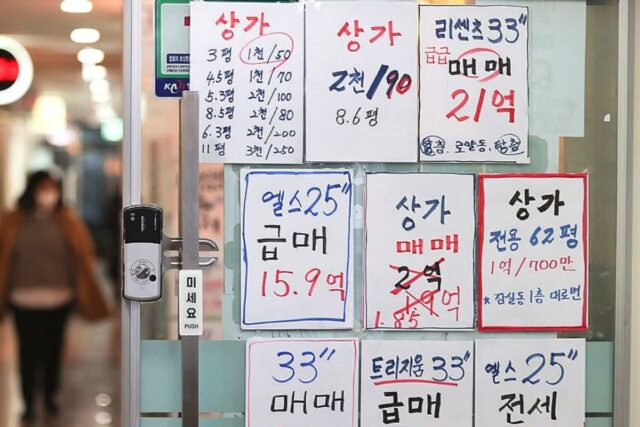 상가
3평 1천/50
4.5평 1천/70
5.3평 2천/100
8.5평 2천/80
6.3평 2천/200
11평 3천/250
상가
2천/90
8.6평
리센츠 33"
급급 매매
21억
로얄동, 탑층
엘스 25"
급매
15.9억
상가
매매
2억
1.9억
1.85
상가
전용 62평
1억/700만
*잠실동 1층 대로변
미세요
PUSH
33"
매매
트리지움 33"
급매
엘스 25"
전세